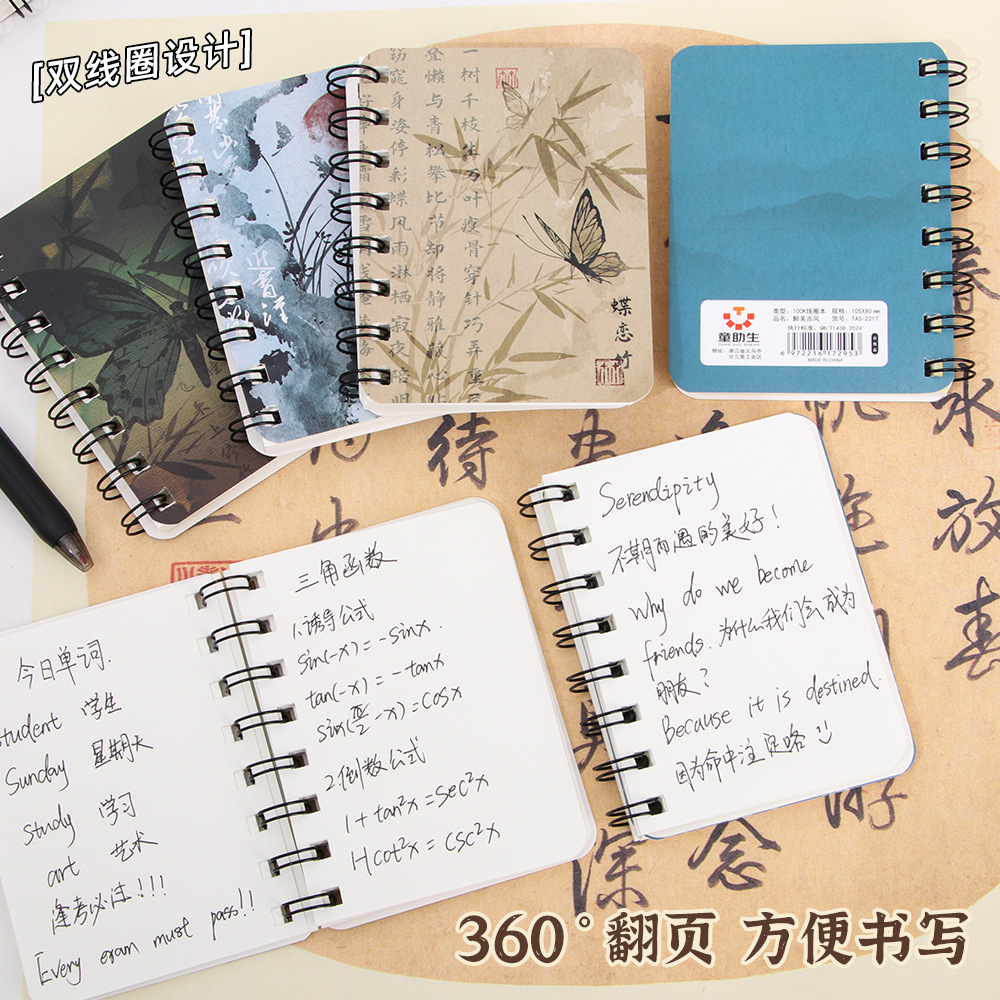 [双线圈设计]
一树千枝生万叶瘦骨穿针巧弄
叠懒与青松攀比节却将静雅
窈窕身姿停彩蝶风雨淋栖寂夜
蝶恋竹
童助生
类型：100K线圈本 规格：105X80mm
品名：醉美古风 货号：TAS-2217
执行标准：QB/T1438 2024
地址：浙江省义乌市
6 972216 172953
MADE IN CHINA
待
永
放
春
深念
游
今日单词.
student 学生
Sunday 星期天
study 学习
art 艺术
逢考必过!!!
Every exam must pass!!
三角函数
1.诱导公式
sin(-x)=-sinx.
tan(-x)=-tanx
sin(π/2-x)=cosx
2.倒数公式
1+tan²x=sec²x
1+cot²x=csc²x
Serendipity
不期而遇的美好!
Why do we become
friends.为什么我们会成为
朋友?
Because it is destined.
因为命中注定咯
360°翻页 方便书写